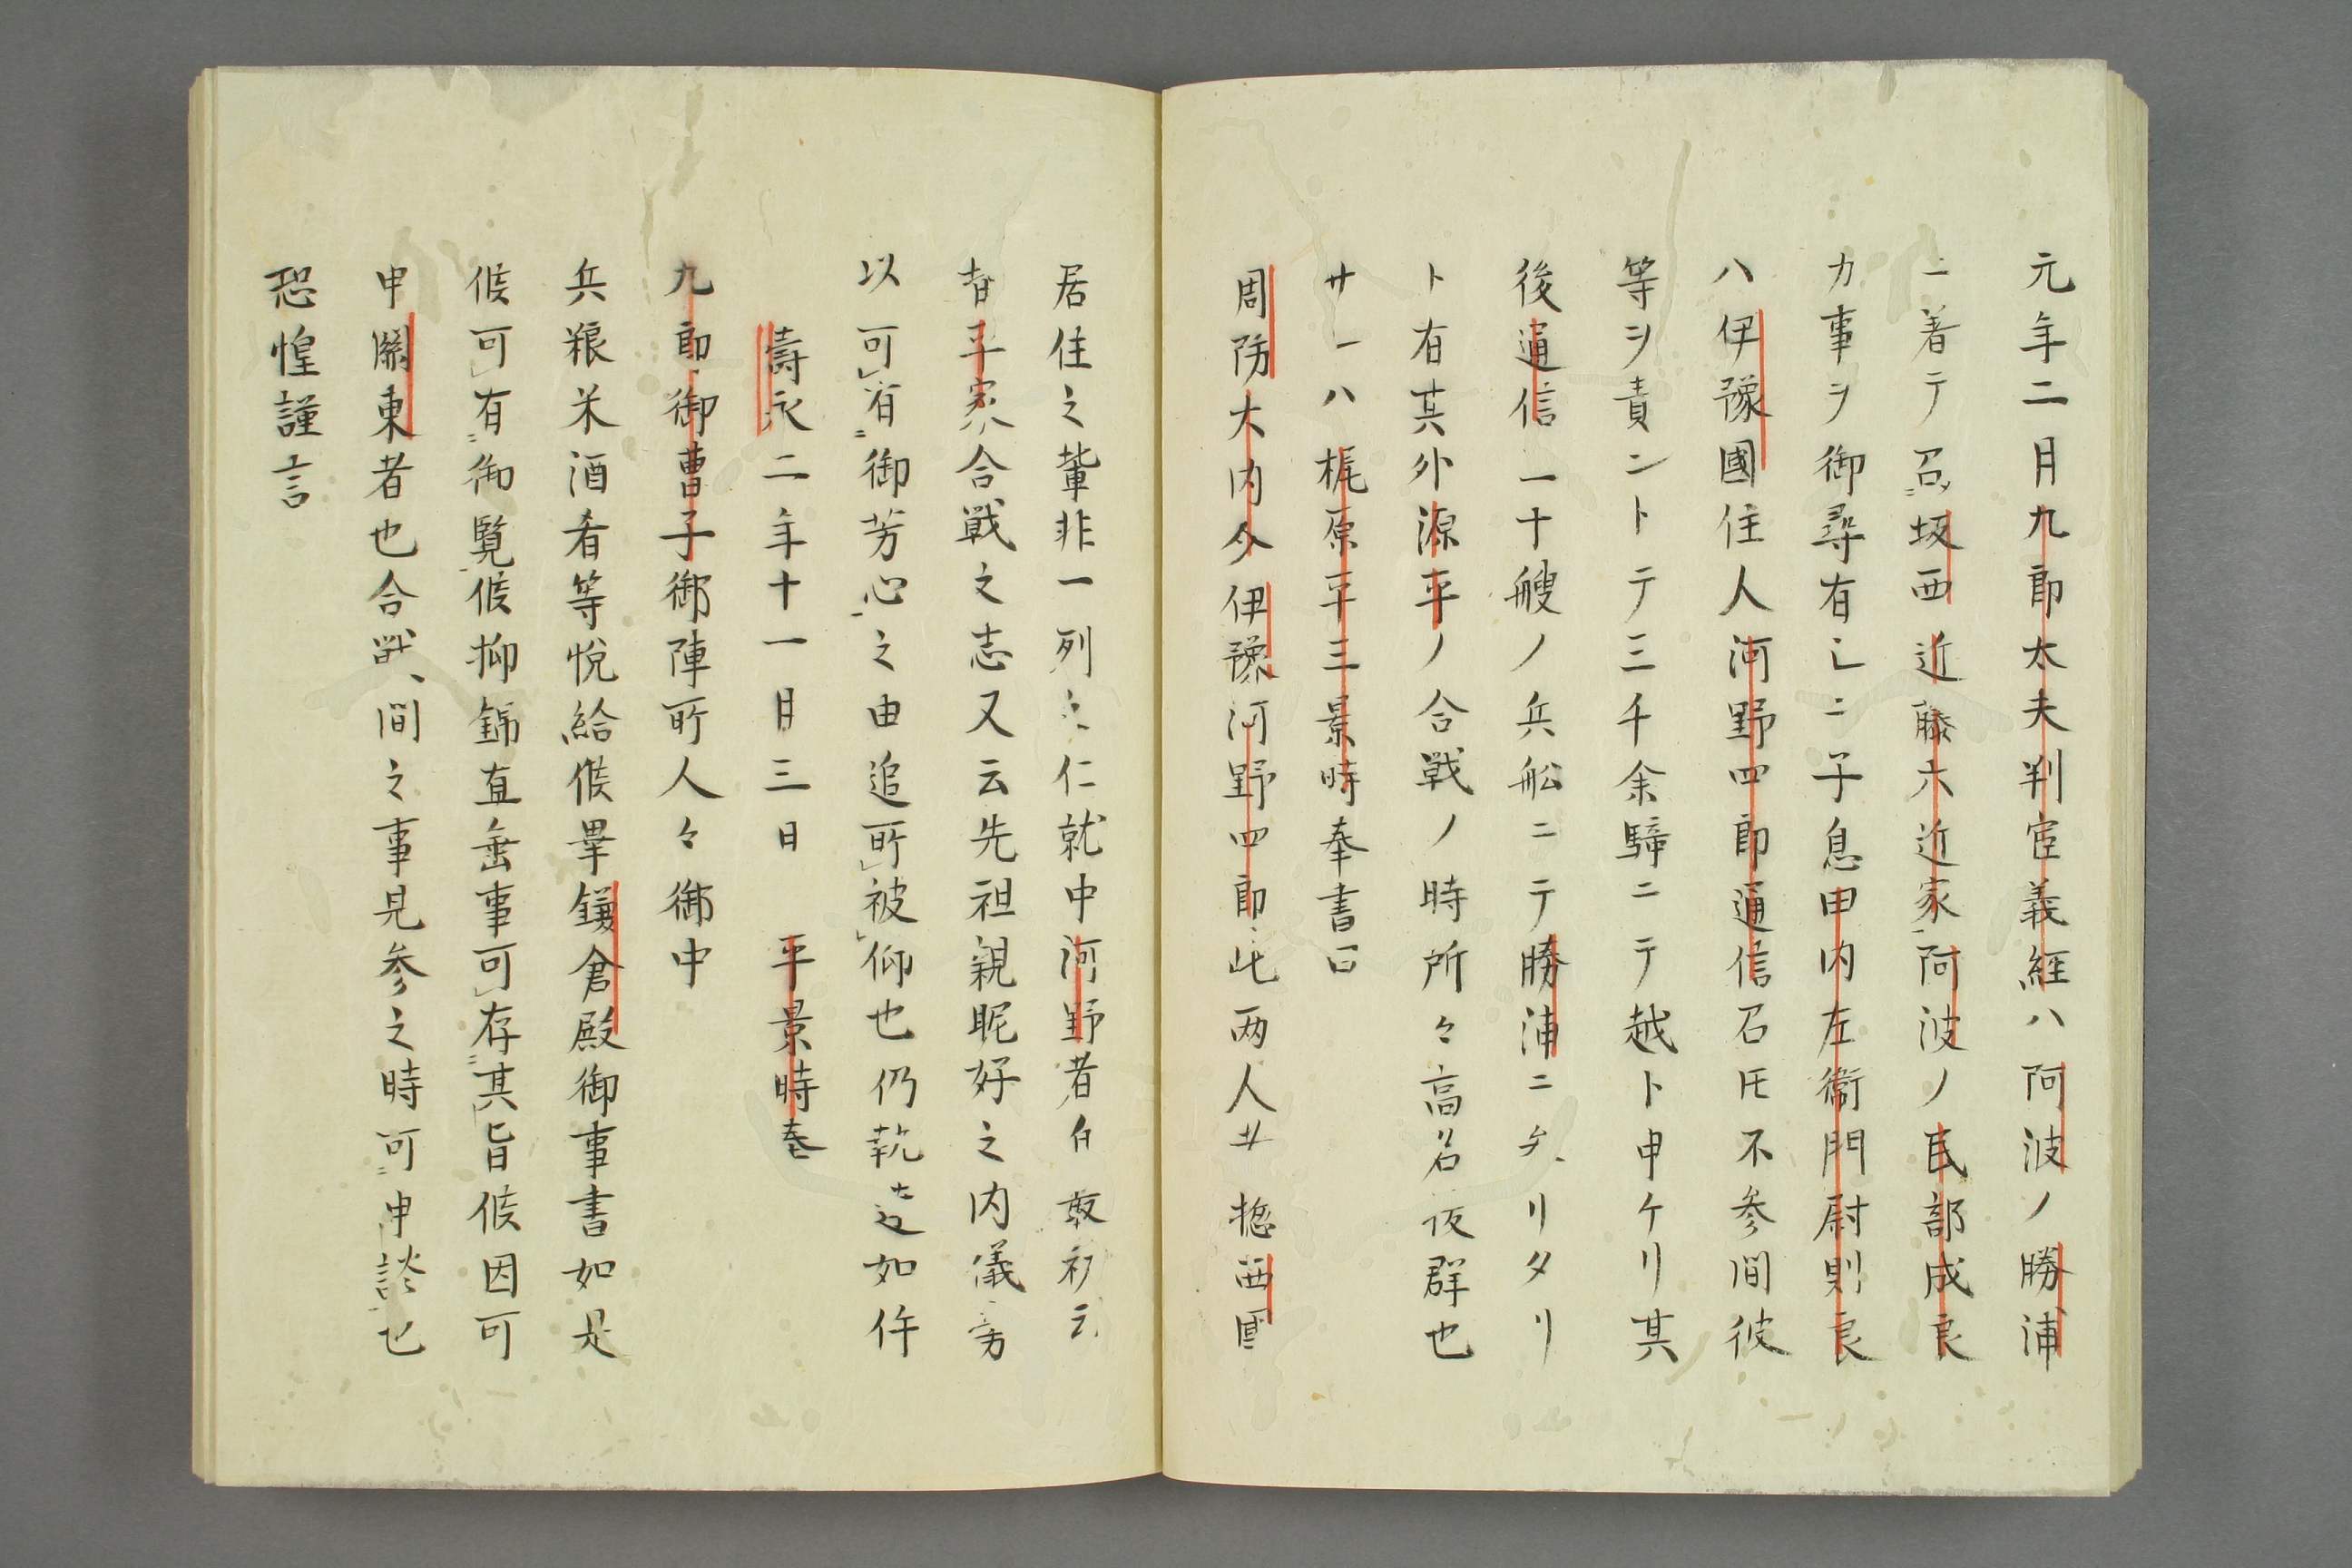 元年二月九郎太夫判官義經ハ阿波ノ勝浦
ニ着テ召坂西近藤六近家阿波ノ民部成良
カ事ヲ御尋有ニ子息田内左衛門尉則良
ハ伊豫國住人河野四郎通信召圧不参間彼
等ヲ責ントテ三千余騎ニテ越ト申ケリ其
後通信一十艘ノ兵舩ニテ勝浦ニリタリ
ト有其外源平ノ合戰ノ時所々高名抜群也
サ一ハ梶原平三景時奉書曰
周防大内介伊豫河野四郎此两人サ捴西國
居住之輩非一列之仁就中河野者自敢初云
昔平家合戰之志又云先祖親昵好之内儀旁
以可有御芳心之由追所被仰也仍執達如件
壽永二年十一月三日　平景時奉
九郎御曹子御陣所人々御中
兵粮米酒肴等悦給候畢鎌倉殿御事書如是
候可有御覧候抑錦直垂事可存其旨候因可
申關東者也合戰間之事見参之時可申談也
恐惶謹言